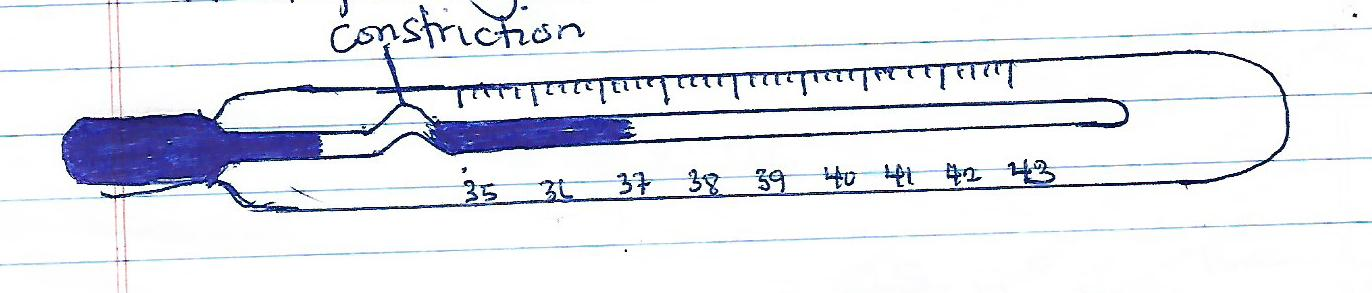 constriction
35 36 37 38 39 40 41 42 43